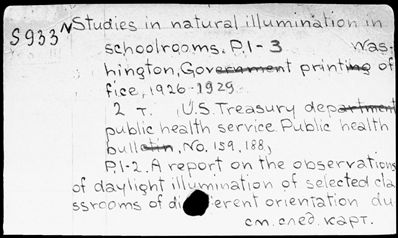 S933 N Studies in natural illumination in
schoolrooms. P.1-3 Was-
hington, Government printing of
fice, 1926-1929.
2 т. , U.S. Treasury department
public health service. Public health
bulletin, No. 159, 188,
P.1-2. A report on the observations
of daylight illumination of selected cla
ssrooms of different orientation du
см. след. карт.